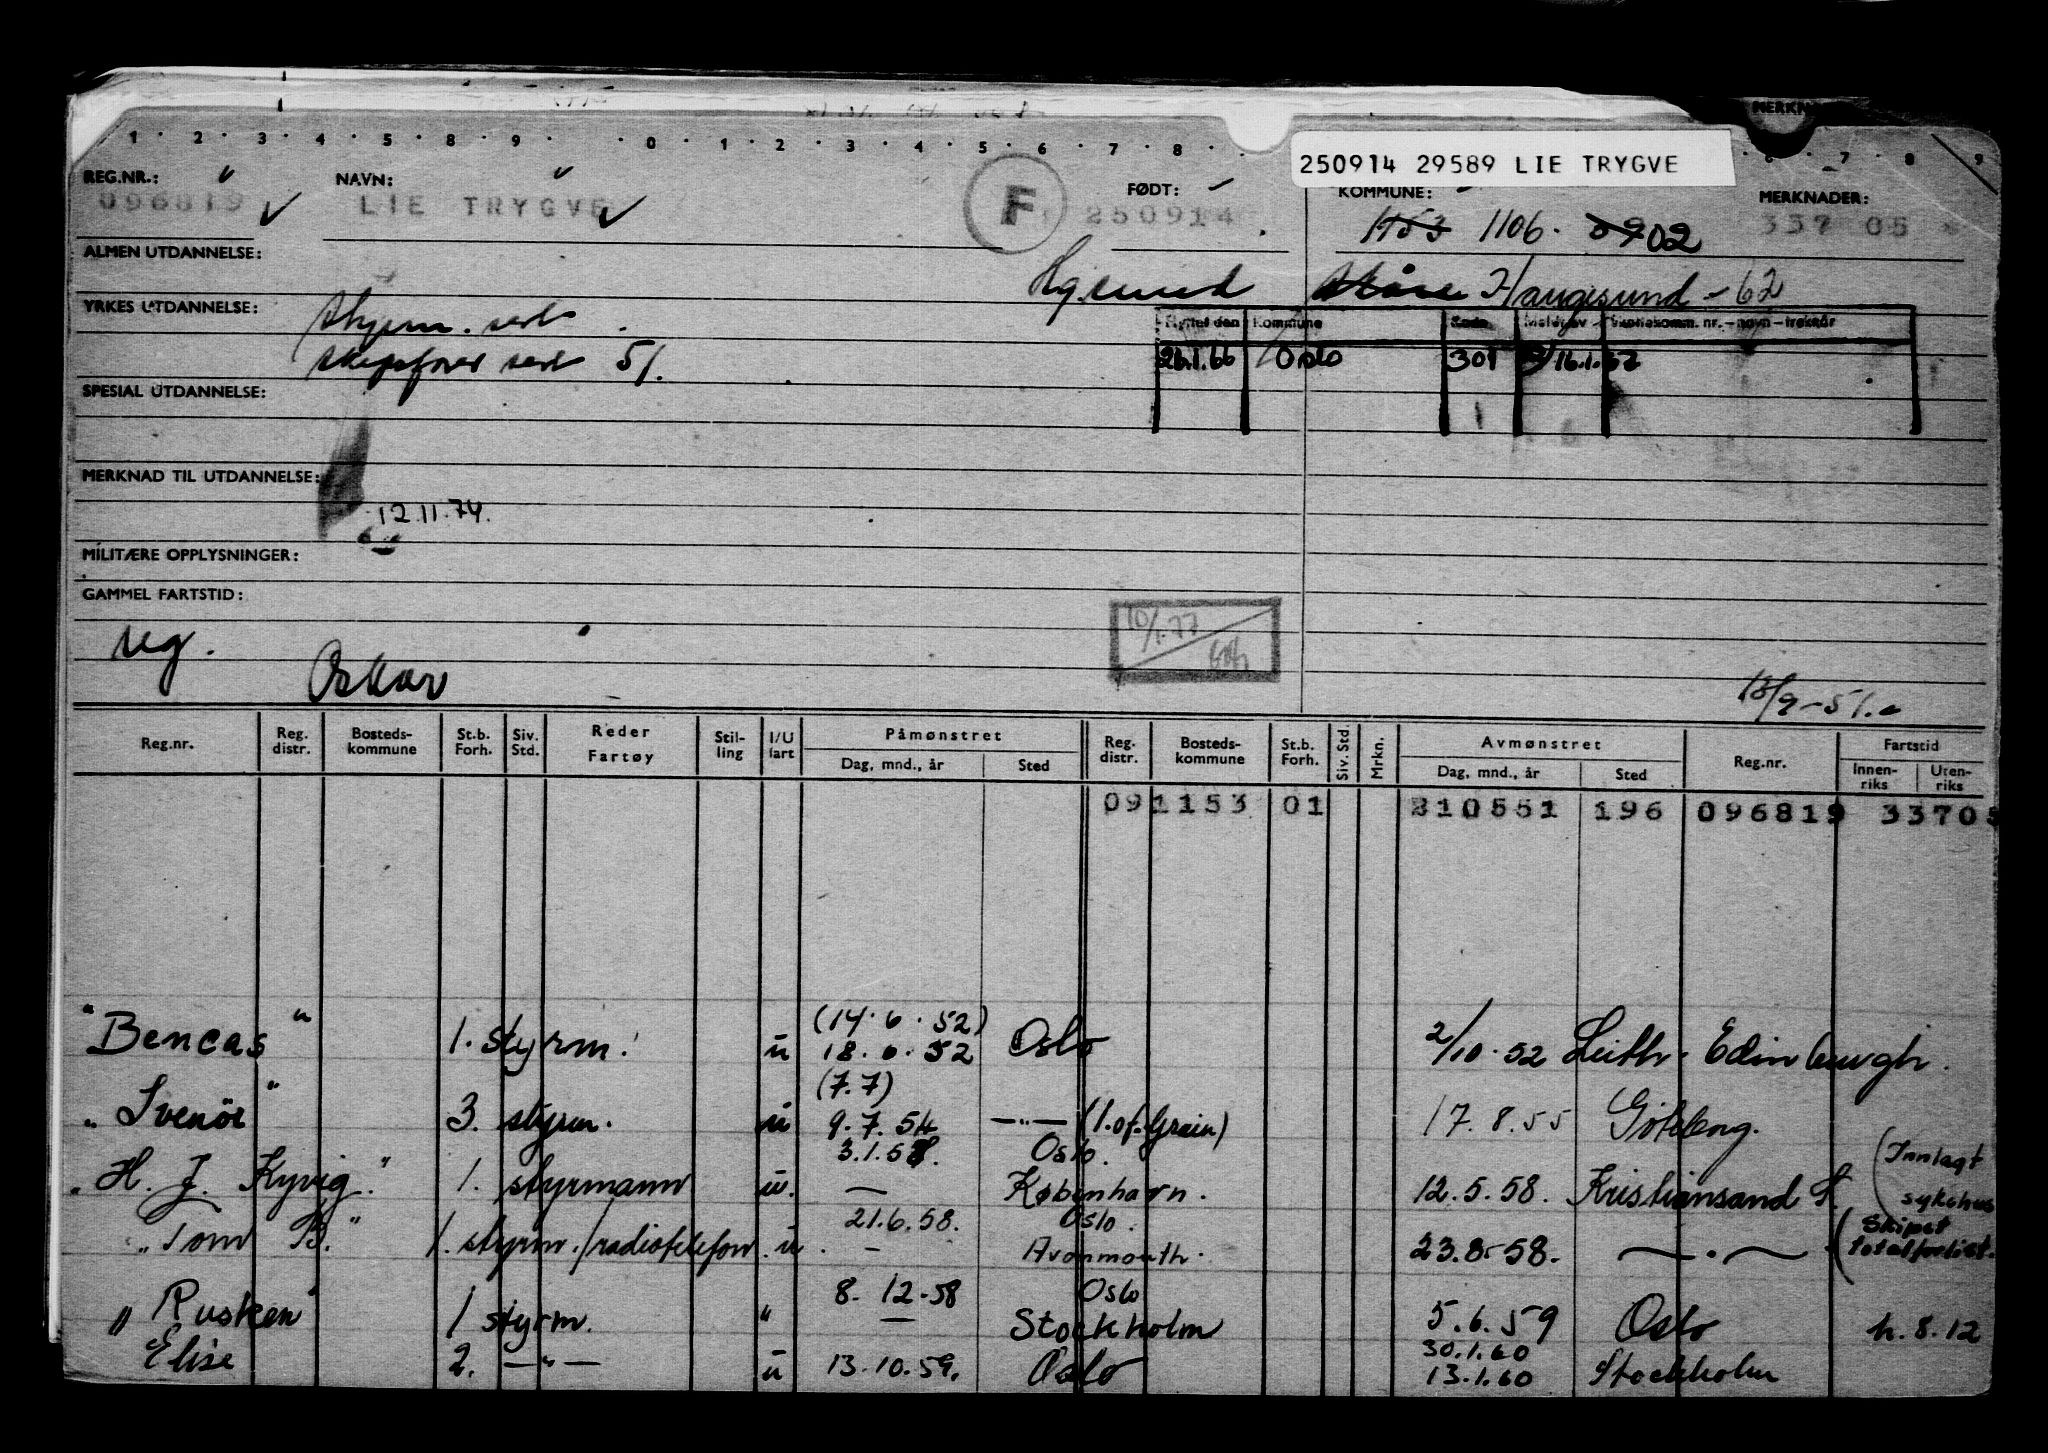 MERKN
1 · 2 · 3 4 · 5 · 8 · 9 · 0 · 1 · 2 · 3 · 4 · 5 · 6 · 7 · 8 ·
6 · 7 · 8 9
250914 29589 LIE TRYGVE
REG.NR.: NAVN: FØDT: KOMMUNE: MERKNADER:
096819 LIE TRYGVE F 250914 1153 1106. 0902 337 05
ALMEN UTDANNELSE:
Hgsund Skåre Haugesund - 62
YRKES UTDANNELSE: styrm. sert.
Flyttet den Kommune Kode
skipsfører sert 51.
26.1.66 Oslo 301 16.1.
SPESIAL UTDANNELSE:
MERKNAD TIL UTDANNELSE:
12.11.74.
MILITÆRE OPPLYSNINGER:
GAMMEL FARTSTID:
10/1.77
reg.
Oskar
18/9-51.
Reg.nr. Reg. distr. Bosteds-kommune St.b. Forh. Siv. Std. Reder Fartøy Stil-ling I/U fart Påmønstret Dag, mnd., år Sted Reg. distr. Bosteds-kommune St.b. Forh. Siv. Std. Mrkn. Avmønstret Dag, mnd., år Sted Reg.nr. Fartstid Innen-riks Uten-riks
091153 01 210551 196 096819 33705
(14.6.52)
"Bencas" 1. styrm. u 18.6.52 Oslo 2/10.52 Leith. Edinburgh.
(7.7)
" " 3. styrm. u 9.7.54 —"— (1.of.Grein) 17.8.55 Göteborg.
3.1.58. Oslo. (Innlagt
"H. J. Kyvig." 1. styrmann u. — København. 12.5.58. Kristiansand S. sykehus
21.6.58. Oslo. (Skipet
"Tom B." 1. styrm./radiotelefon. u. — Avonmouth. 23.8-58. —.— totalforlist.
8.12-58 Oslo
"Rusken" 1 styrm. " — Stockholm 5.6.59 Oslo h.8.12
30.1.60
Elise 2. —"— u 13.10.59. Oslo 13.1.60 Stockholm